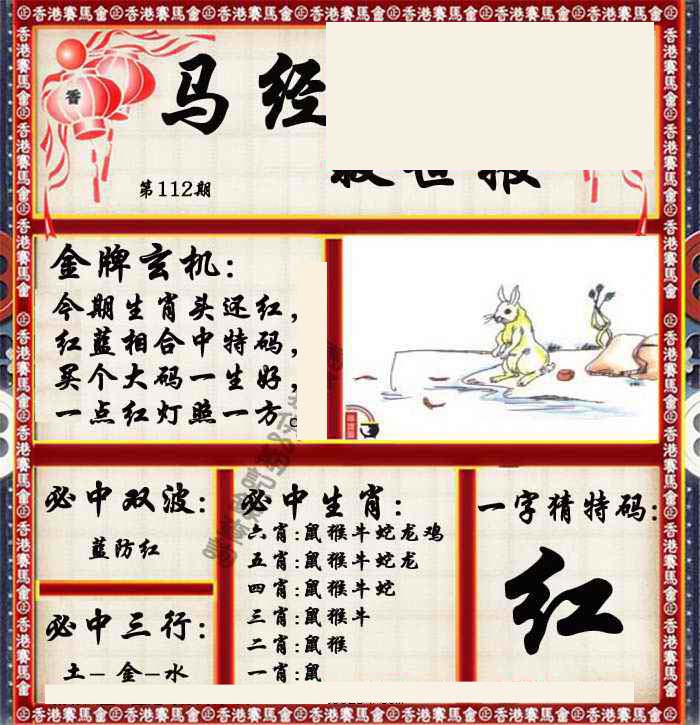 马经
第112期
金牌玄机：
今期生肖头还红，
红蓝相合中特码，
买个大码一生好，
一点红灯照一方。
必中双波：
蓝防红
必中三行：
土－金－水
必中生肖：
六肖：鼠猴牛蛇龙鸡
五肖：鼠猴牛蛇龙
四肖：鼠猴牛蛇
三肖：鼠猴牛
二肖：鼠猴
一肖：鼠
一字猜特码：
红
香港賽馬會